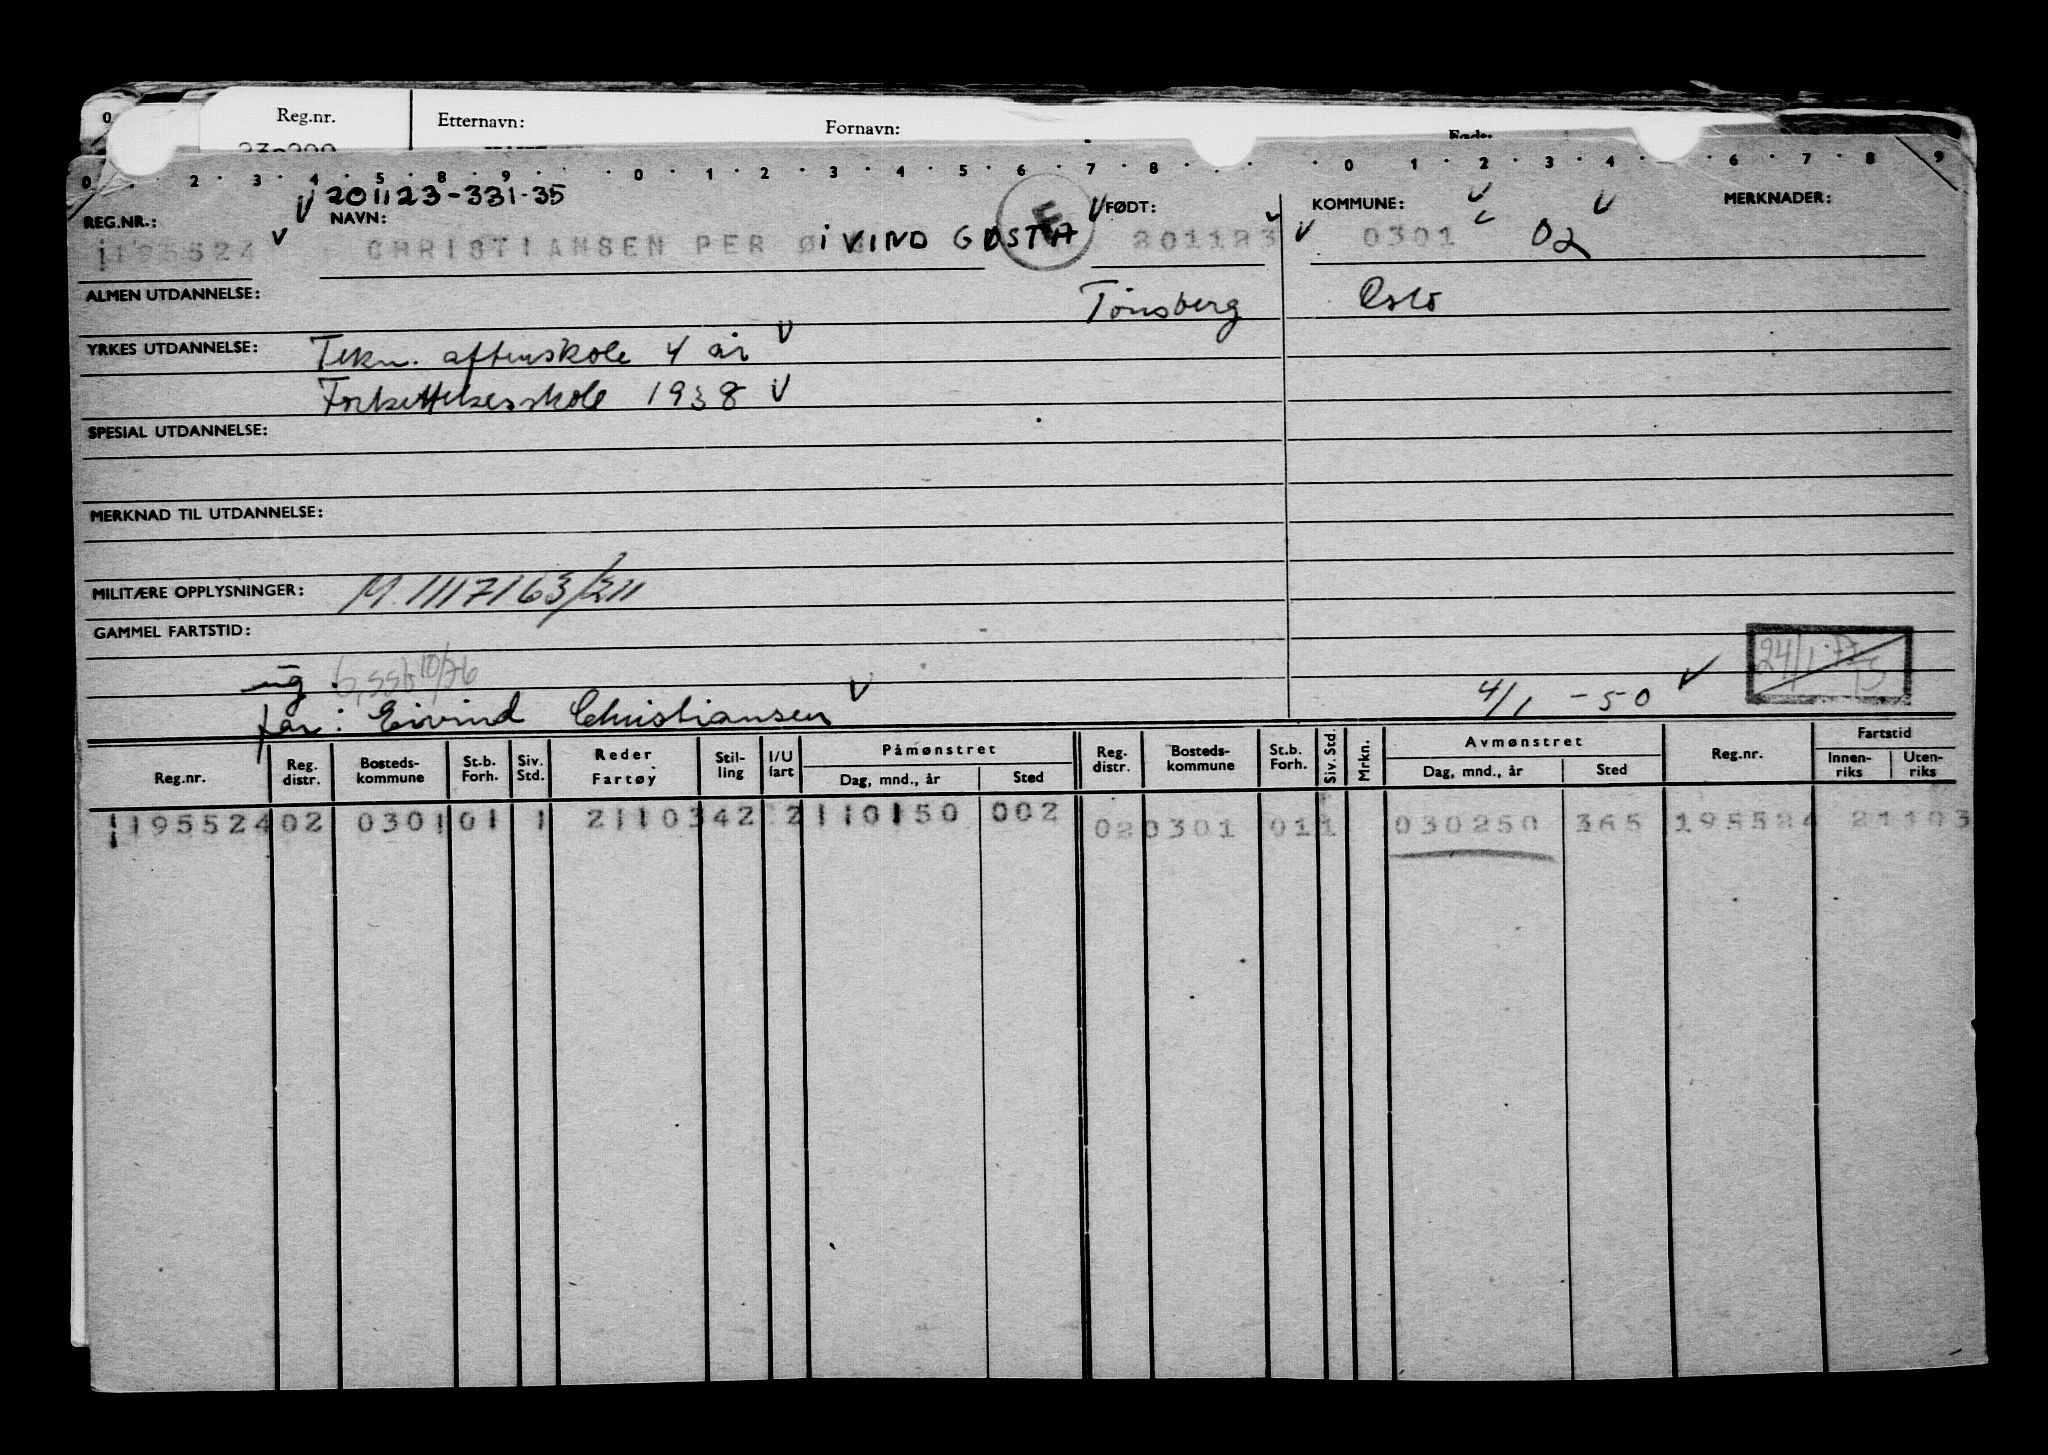 Reg.nr. Etternavn: Fornavn:
0 · · 2 · 3 · 4 · 5 · 8 · 9 · · · 0 · 1 · 2 · 3 · 4 · 5 · 6 · 7 · 8 · · · · 0 · 1 · 2 · 3 · 4 · · 6 · 7 · 8 · 9
201123-331-35
REG.NR.: NAVN: FØDT: KOMMUNE: MERKNADER:
195524 CHRISTIANSEN PER ØIVIND GØSTA 201123 0301 02
ALMEN UTDANNELSE: Tønsberg Oslo
YRKES UTDANNELSE: Tekn. aftenskole 4 år
Fortsettelsesskole 1938
SPESIAL UTDANNELSE:
MERKNAD TIL UTDANNELSE:
MILITÆRE OPPLYSNINGER: M 1117163/211
GAMMEL FARTSTID:
ug.
far: Eivind Christiansen 4/1 -50
Reg.nr. Reg. distr. Bosteds-kommune St.b. Forh. Siv. Std. Reder Fartøy Stil-ling I/U fart Påmønstret Dag, mnd., år Sted Reg. distr. Bosteds-kommune St.b. Forh. Siv. Std. Mrkn. Avmønstret Dag, mnd., år Sted Reg.nr. Fartstid Innen-riks Uten-riks
195524 02 0301 01 1 21103 42 2 110150 002 02 0301 01 1 030250 365 195524 21103